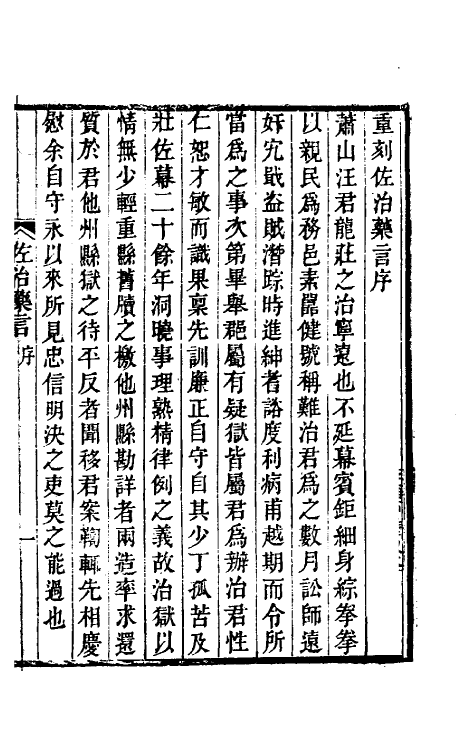 重刻佐治藥言序
蕭山汪君龍莊之治寧遠也不延幕賓鉅細身綜拳拳
以親民為務邑素嚚健號稱難治君為之數月訟師遠
奸宄戢盜賊潛踪時進紳耆諮度利病甫越期而令所
當為之事次第畢舉郡屬有疑獄皆屬君為辦治君性
仁恕才敏而識果稟先訓廉正自守自其少丁孤苦及
壯佐幕二十餘年洞曉事理熟精律例之義故治獄以
情無少輕重縣舊牘之檄他州縣勘詳者兩造率求還
質於君他州縣獄之待平反者聞移君案鞫輒先相慶
慰余自守永以來所見忠信明決之吏莫之能過也
佐治藥言 序 一